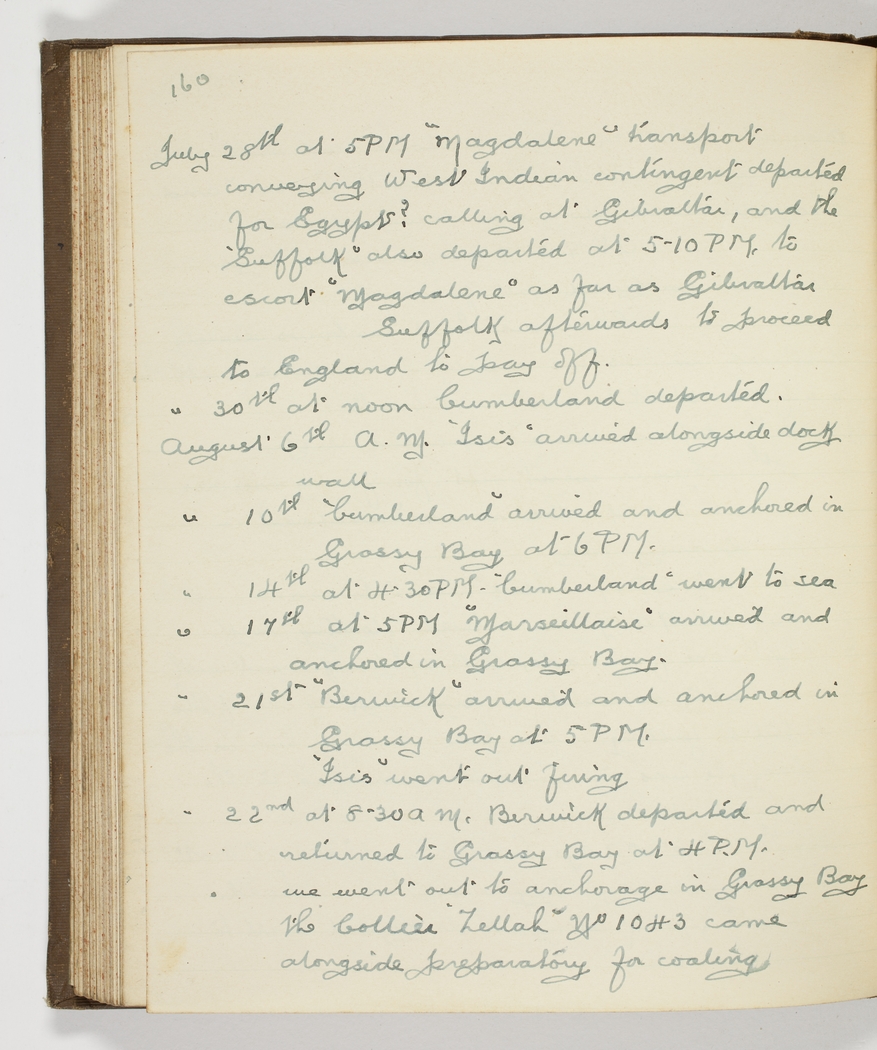 160
July 28th at 5PM "Magdalene" transport
conveying West Indian contingent departed
for Egypt? calling at Gibraltar, and the
"Suffolk" also departed at 5-10 PM. to
escort "Magdalene" as far as Gibraltar
Suffolk afterwards to proceed
to England to pay off.
" 30th at noon Cumberland departed.
August 6th A.M. "Isis" arrived alongside dock
wall
" 10th "Cumberland" arrived and anchored in
Grassy Bay at 6 PM.
" 14th at 4-30PM - "Cumberland" went to sea
" 17th at 5PM "Marseillaise" arrived and
anchored in Grassy Bay.
" 21st "Berwick" arrived and anchored in
Grassy Bay at 5 PM.
"Isis" went out firing
" 22nd at 8-30 a M. Berwick departed and
returned to Grassy Bay at 4 P.M.
we went out to anchorage in Grassy Bay
the Collier "Zellah" No 1043 came
alongside preparatory for coaling